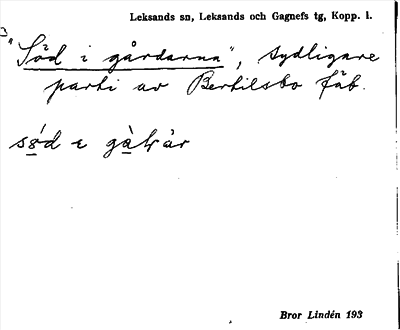 Leksands sn, Leksands och Gagnefs tg, Kopp. l.
"Söd i gårdarna", sydligare
parti av Bertilsbo fäb.
Bror Lindén 193